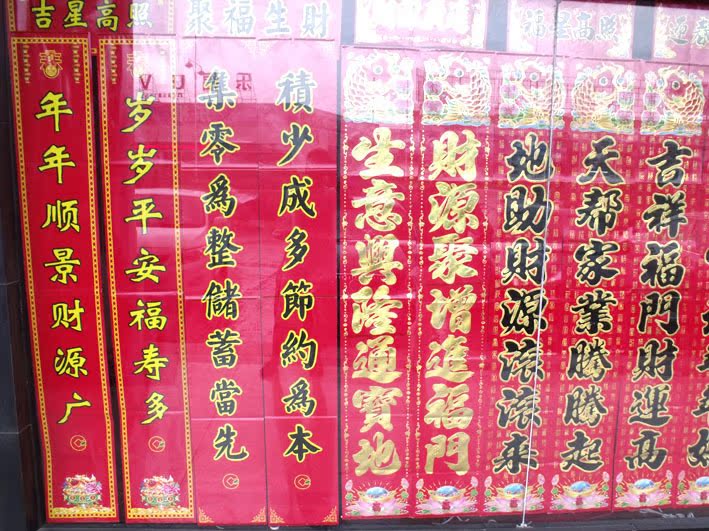 吉星高照
聚福生財
福星高照
年年顺景财源广
岁岁平安福寿多
集零爲整儲蓄當先
積少成多節約爲本
生意興隆通寶地
財源聚增進福門
地助財源滾滾来
天帮家業騰騰起
吉祥福門財運高